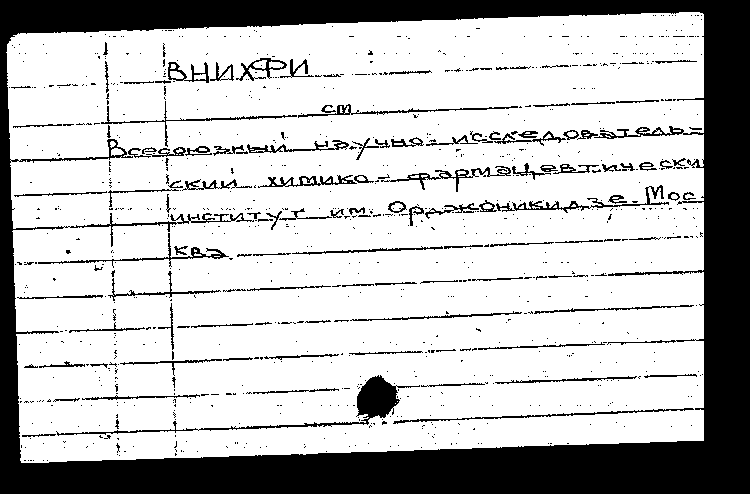 ВНИХФИ
см.
Всесоюзный научно-исследователь-
ский химико-фармацевтически
институт им. Орджоникидзе. Мос-
ква